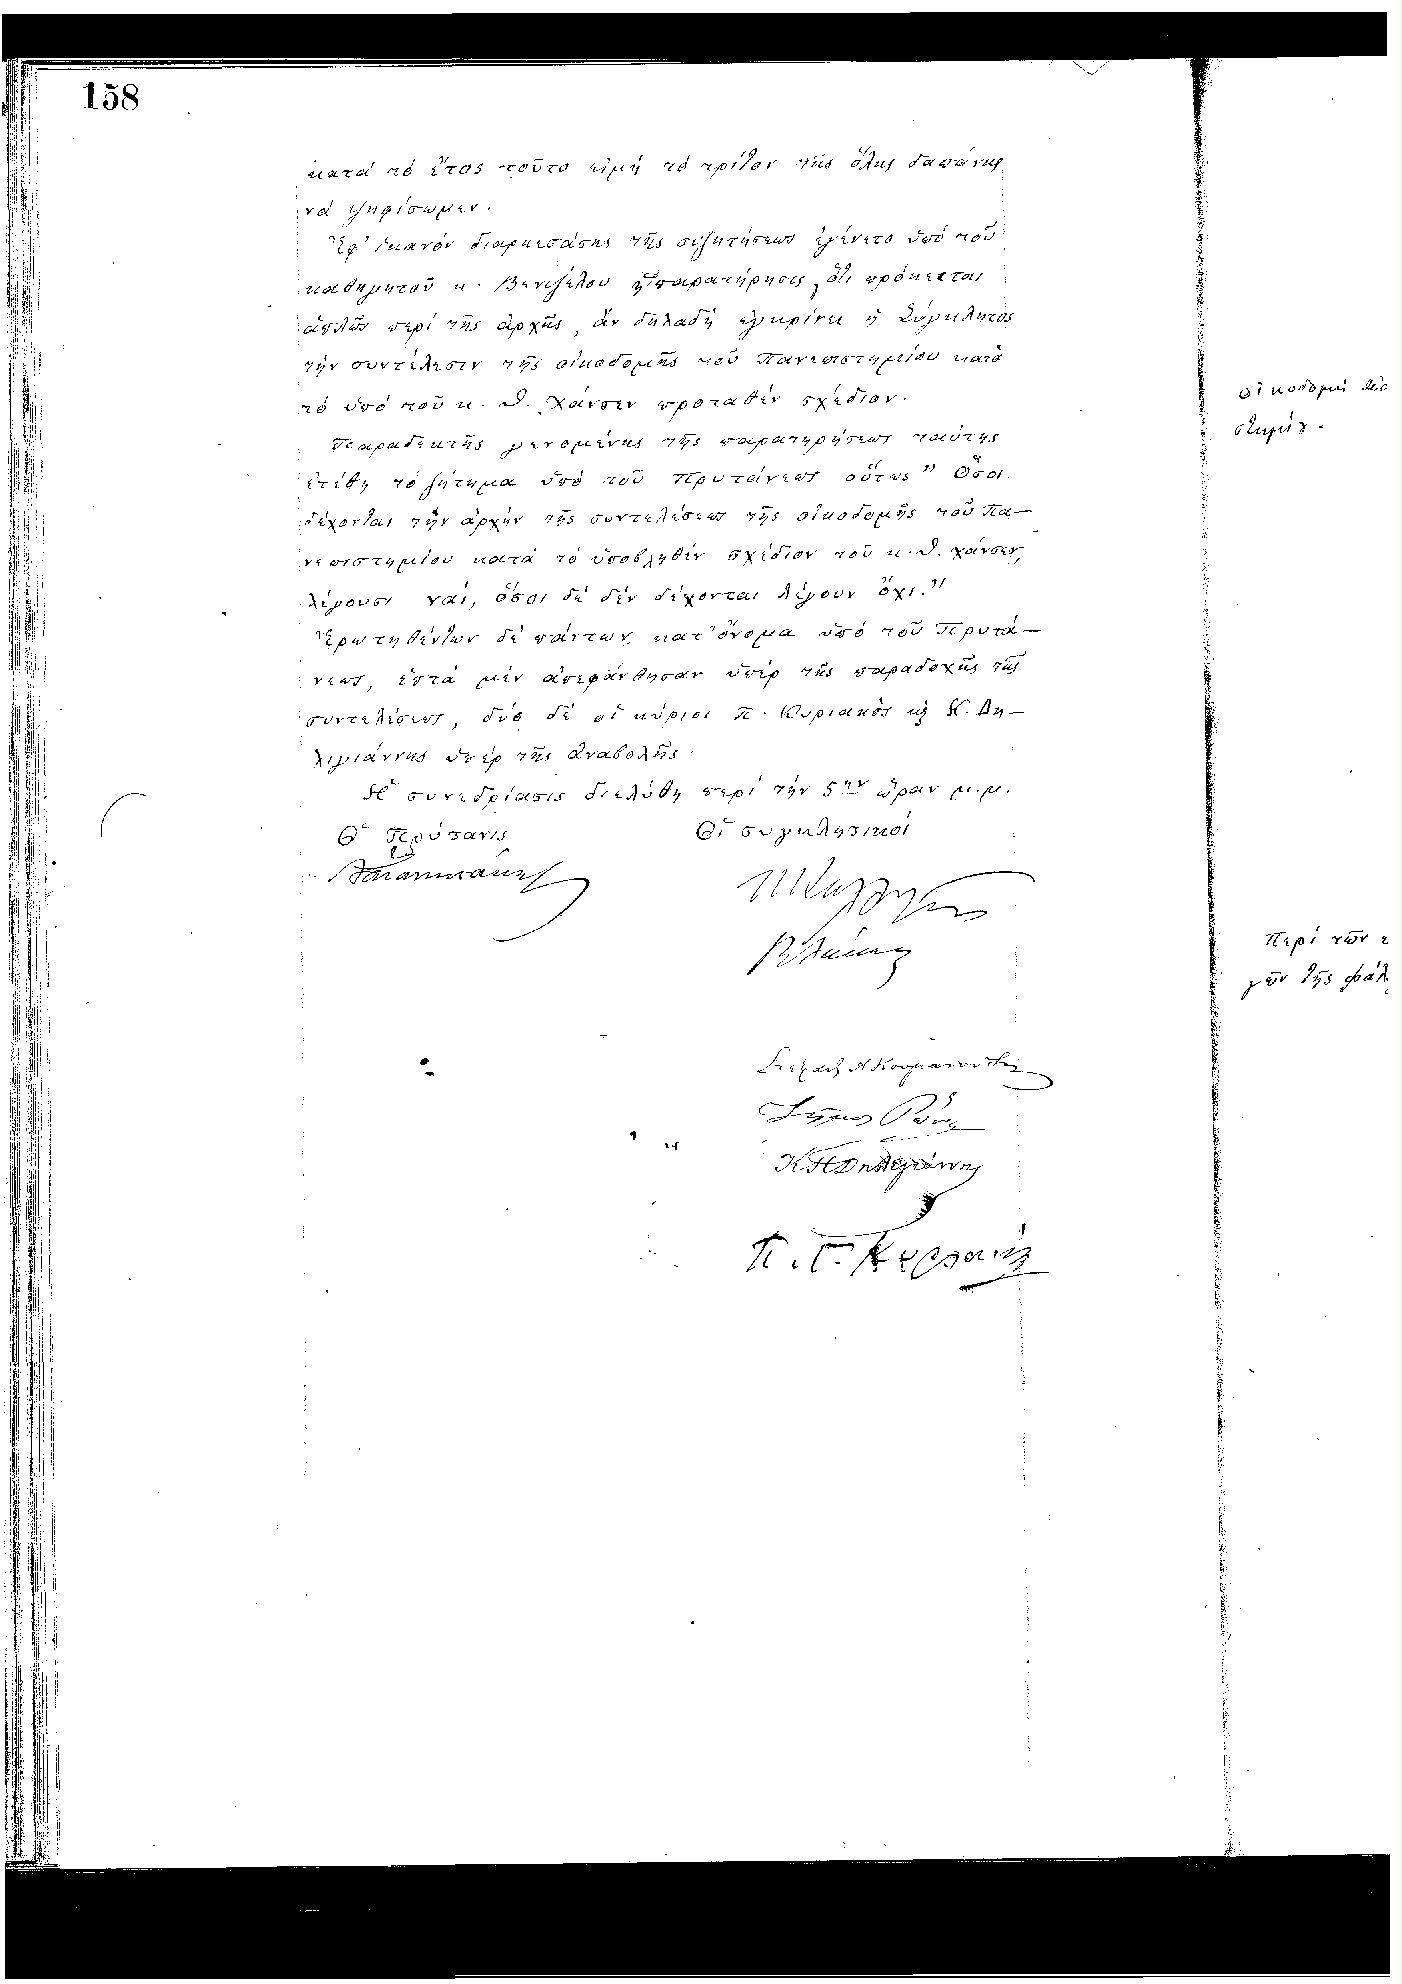 158
κατά τό ἔτος τοῦτο εἰμή τό τρίτον τῆς ὅλης δαπάνης
νά ψηφίσωμεν.
Ἐφ' ἱκανόν διαρκεσάσης τῆς συζητήσεως ἐγένετο ὑπό τοῦ
καθηγητοῦ κ. Βενιζέλου ἡ παρατήρησις, ὅτι πρόκειται
ἁπλῶς περί τῆς ἀρχῆς, ἄν δηλαδή ἐγκρίνει ἡ Σύγκλητος
τήν συντέλεσιν τῆς οἰκοδομῆς τοῦ Πανεπιστημίου κατά
τό ὑπό τοῦ κ. Θ. Χάνσεν προταθέν σχέδιον.
Παραδεκτῆς γενομένης τῆς παρατηρήσεως ταύτης
ἐτέθη τό ζήτημα ὑπό τοῦ Πρυτάνεως οὕτως" Ὅσοι
δέχονται τήν ἀρχήν τῆς συντελέσεως τῆς οἰκοδομῆς τοῦ Πα-
νεπιστημίου κατά τό ὑποβληθέν σχέδιον τοῦ κ. Θ. Χάνσεν,
λέγουσι ναί, ὅσοι δέ δέν δέχονται λέγουν ὄχι."
Ἐρωτηθέντων δέ πάντων κατ' ὄνομα ὑπό τοῦ Πρυτά-
νεως, ἑπτά μέν ἀπεφάνθησαν ὑπέρ τῆς παραδοχῆς τῆς
συντελέσεως, δύο δέ οἱ κύριοι Π. Κυριακός κ Κ. Δη-
λιγιάννης ὑπέρ τῆς ἀναβολῆς.
Ἡ συνεδρίασις διελύθη περί τήν 5ην ὥραν μ.μ.
Ὁ Πρύτανις
Οἱ συγκλητικοί
Στέφανος Α Κουμανούδης
Κ Ν Δηλιγιάννης
Π. Γ. Κυριακός
οἰκοδομή
Περί τῶν
γῶν τῆς